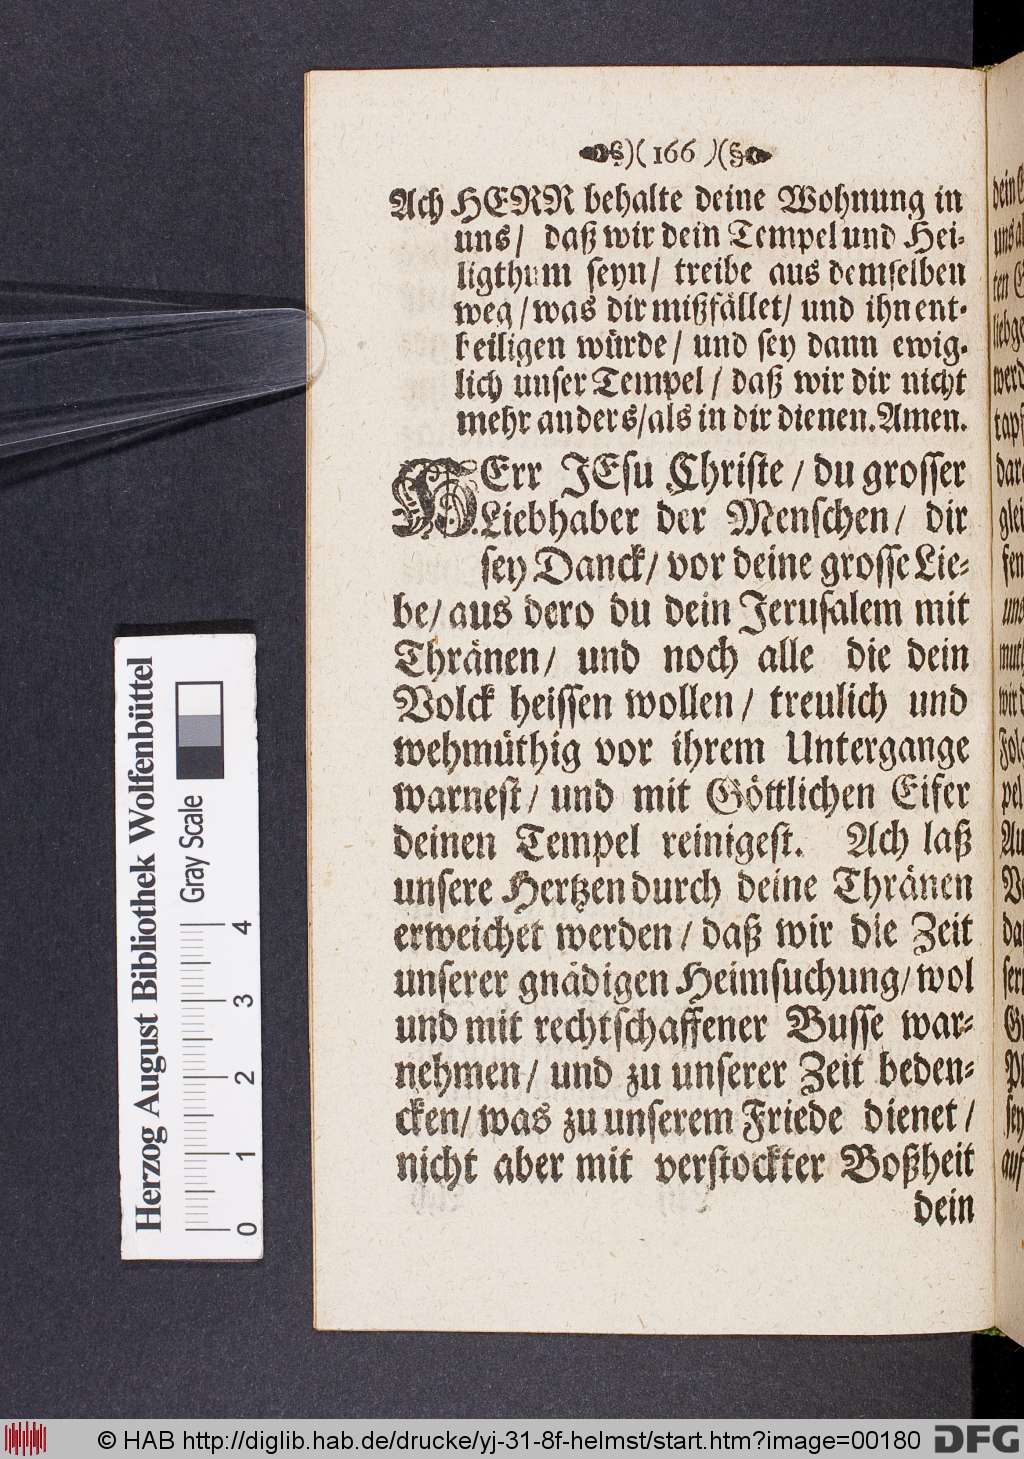 §)( 166 )(§
Ach HERR behalte deine Wohnung in
uns / daß wir dein Tempel und Hei-
ligthum seyn / treibe aus demselben
weg / was dir mißfället / und ihn ent-
heiligen würde / und sey dann ewig-
lich unser Tempel / daß wir dir nicht
mehr anders / als in dir dienen. Amen.
HErr JEsu Christe / du grosser
Liebhaber der Menschen / dir
sey Danck / vor deine grosse Lie-
be / aus dero du dein Jerusalem mit
Thränen / und noch alle die dein
Volck heissen wollen / treulich und
wehmüthig vor ihrem Untergange
warnest / und mit Göttlichen Eifer
deinen Tempel reinigest. Ach laß
unsere Hertzen durch deine Thränen
erweichet werden / daß wir die Zeit
unserer gnädigen Heimsuchung / wol
und mit rechtschaffener Busse war-
nehmen / und zu unserer Zeit beden-
cken / was zu unserem Friede dienet /
nicht aber mit verstockter Boßheit
dein
Herzog August Bibliothek Wolfenbüttel
Gray Scale
0 1 2 3 4
© HAB http://diglib.hab.de/drucke/yj-31-8f-helmst/start.htm?image=00180
DFG